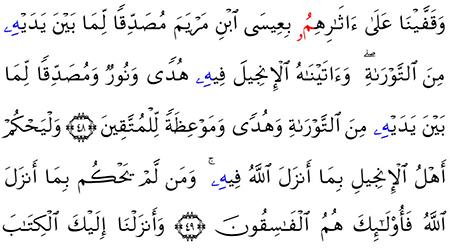 وَقَفَّيْنَا عَلَىٰ ءَاثَـٰرِهِمُۥ بِعِيسَى ٱبْنِ مَرْيَمَ مُصَدِّقًا لِّمَا بَيْنَ يَدَيْهِۦ
مِنَ ٱلتَّوْرَىٰةِ ۖ وَءَاتَيْنَـٰهُ ٱلْإِنجِيلَ فِيهِۦ هُدًى وَنُورٌ وَمُصَدِّقًا لِّمَا
بَيْنَ يَدَيْهِۦ مِنَ ٱلتَّوْرَىٰةِ وَهُدًى وَمَوْعِظَةً لِّلْمُتَّقِينَ ﴿٤٨﴾ وَلْيَحْكُمْ
أَهْلُ ٱلْإِنجِيلِ بِمَا أَنزَلَ ٱللَّهُ فِيهِۦ ۚ وَمَن لَّمْ يَحْكُم بِمَا أَنزَلَ
ٱللَّهُ فَأُو۟لَـٰئِكَ هُمُ ٱلْفَـٰسِقُونَ ﴿٤٩﴾ وَأَنزَلْنَا إِلَيْكَ ٱلْكِتَـٰبَ